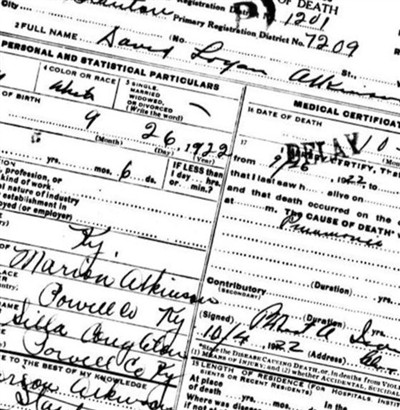 OF DEATH
Registration District No. 1201
City
Primary Registration District No. 7209
2 FULL NAME David Logan Atkinson
(No. St.,
PERSONAL AND STATISTICAL PARTICULARS
4 COLOR OR RACE
5 SINGLE, MARRIED WIDOWED, OR DIVORCED (Write the word)
White
MEDICAL CERTIFICAT
16 DATE OF DEATH
OF BIRTH
9 26 1922
(Month) (Day) (Year)
DELAY 10
17
CERTIFY, That
from 9/26 1922, to
IF LESS than 1 day, hrs. or min.?
yrs. mos. 6 ds.
that I last saw h alive on
and that death occurred on the d
at m, THE CAUSE OF DEATH*
Pneumonia
, profession, or
kind of work
al nature of industry
establishment in
yed (or employer)
Ky.
OF Marion Atkinson
(Duration) yrs.
Contributory
(SECONDARY)
(Duration) yrs.
LACE
Powell Co Ky
(Signed)
NAME
10/4 1922 (Address)
*State the DISEASE CAUSING DEATH, or, in deaths from VIOL
(1) MEANS OF INJURY; and (2) whether ACCIDENTAL, SUICIDAL
Powell Co Ky
LENGTH OF RESIDENCE (FOR HOSPITALS, INSTIT
At place
of death yrs.
Where
TO THE BEST OF MY KNOWLEDGE
Atkinson